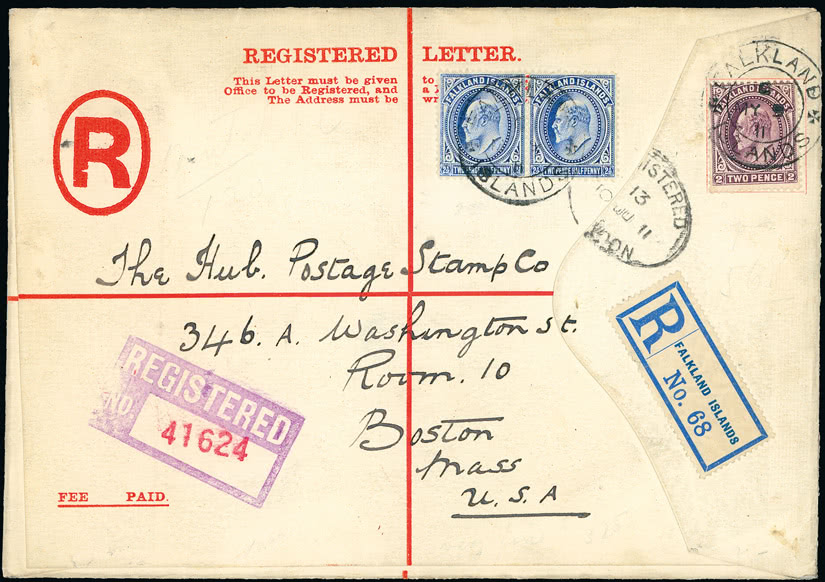 REGISTERED LETTER.
This Letter must be given to
Office to be Registered, and a
The Address must be
R
FALKLAND ISLANDS
TWO PENCE HALFPENNY
FALKLAND ISLANDS
TWO PENCE HALFPENNY
FALKLAND ISLANDS
2 TWO PENCE 2
FALKLAND
ISLANDS
REGISTERED
13
11
The Hub. Postage Stamp Co
346. A. Washington St.
Room. 10
Boston
Mass
U.S.A
REGISTERED
NO
41624
R
FALKLAND ISLANDS
No. 68
FEE PAID.